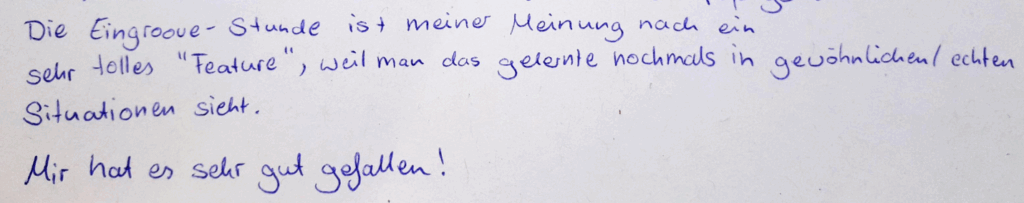 Die Eingroove-Stunde ist meiner Meinung nach ein
sehr tolles "Feature", weil man das gelernte nochmals in gewöhnlichen/echten
Situationen sieht.
Mir hat es sehr gut gefallen!